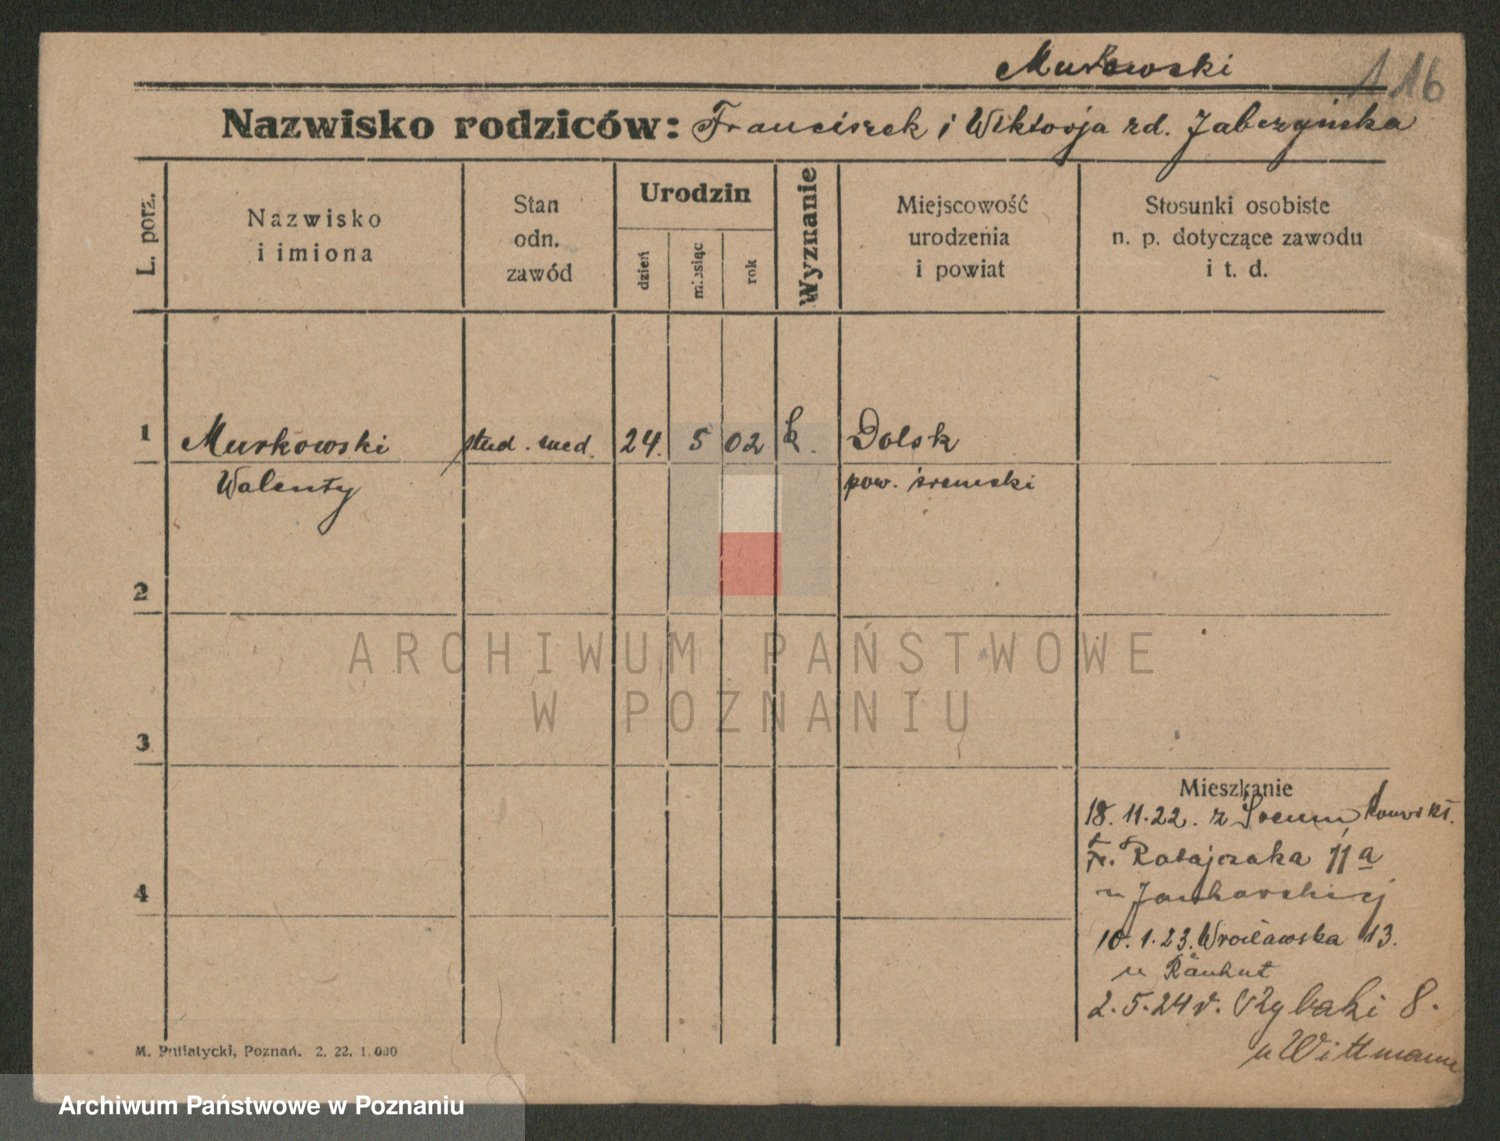 Murkowski
116
Nazwisko rodziców: Franciszek i Wiktorja zd. Jabczyńska
L. porz.
Nazwisko
i imiona
Stan
odn.
zawód
Urodzin
dzień
miesiąc
rok
Wyznanie
Miejscowość
urodzenia
i powiat
Stosunki osobiste
n. p. dotyczące zawodu
i t. d.
1 Murkowski stud. med. 24. 5 02 k. Dolsk
Walenty pow. śremski
2
3
4
Mieszkanie
18. 11. 22. z Śrem
Fr. Ratajczaka 11 a
u Jankowskiej
10. 1. 23. Wrocławska 13.
u Rauhut
2. 5. 24 r. Rybaki 8.
u Wittmann
M. Putiatycki, Poznań. 2. 22. 1.000
ARCHIWUM PAŃSTWOWE
W POZNANIU
Archiwum Państwowe w Poznaniu